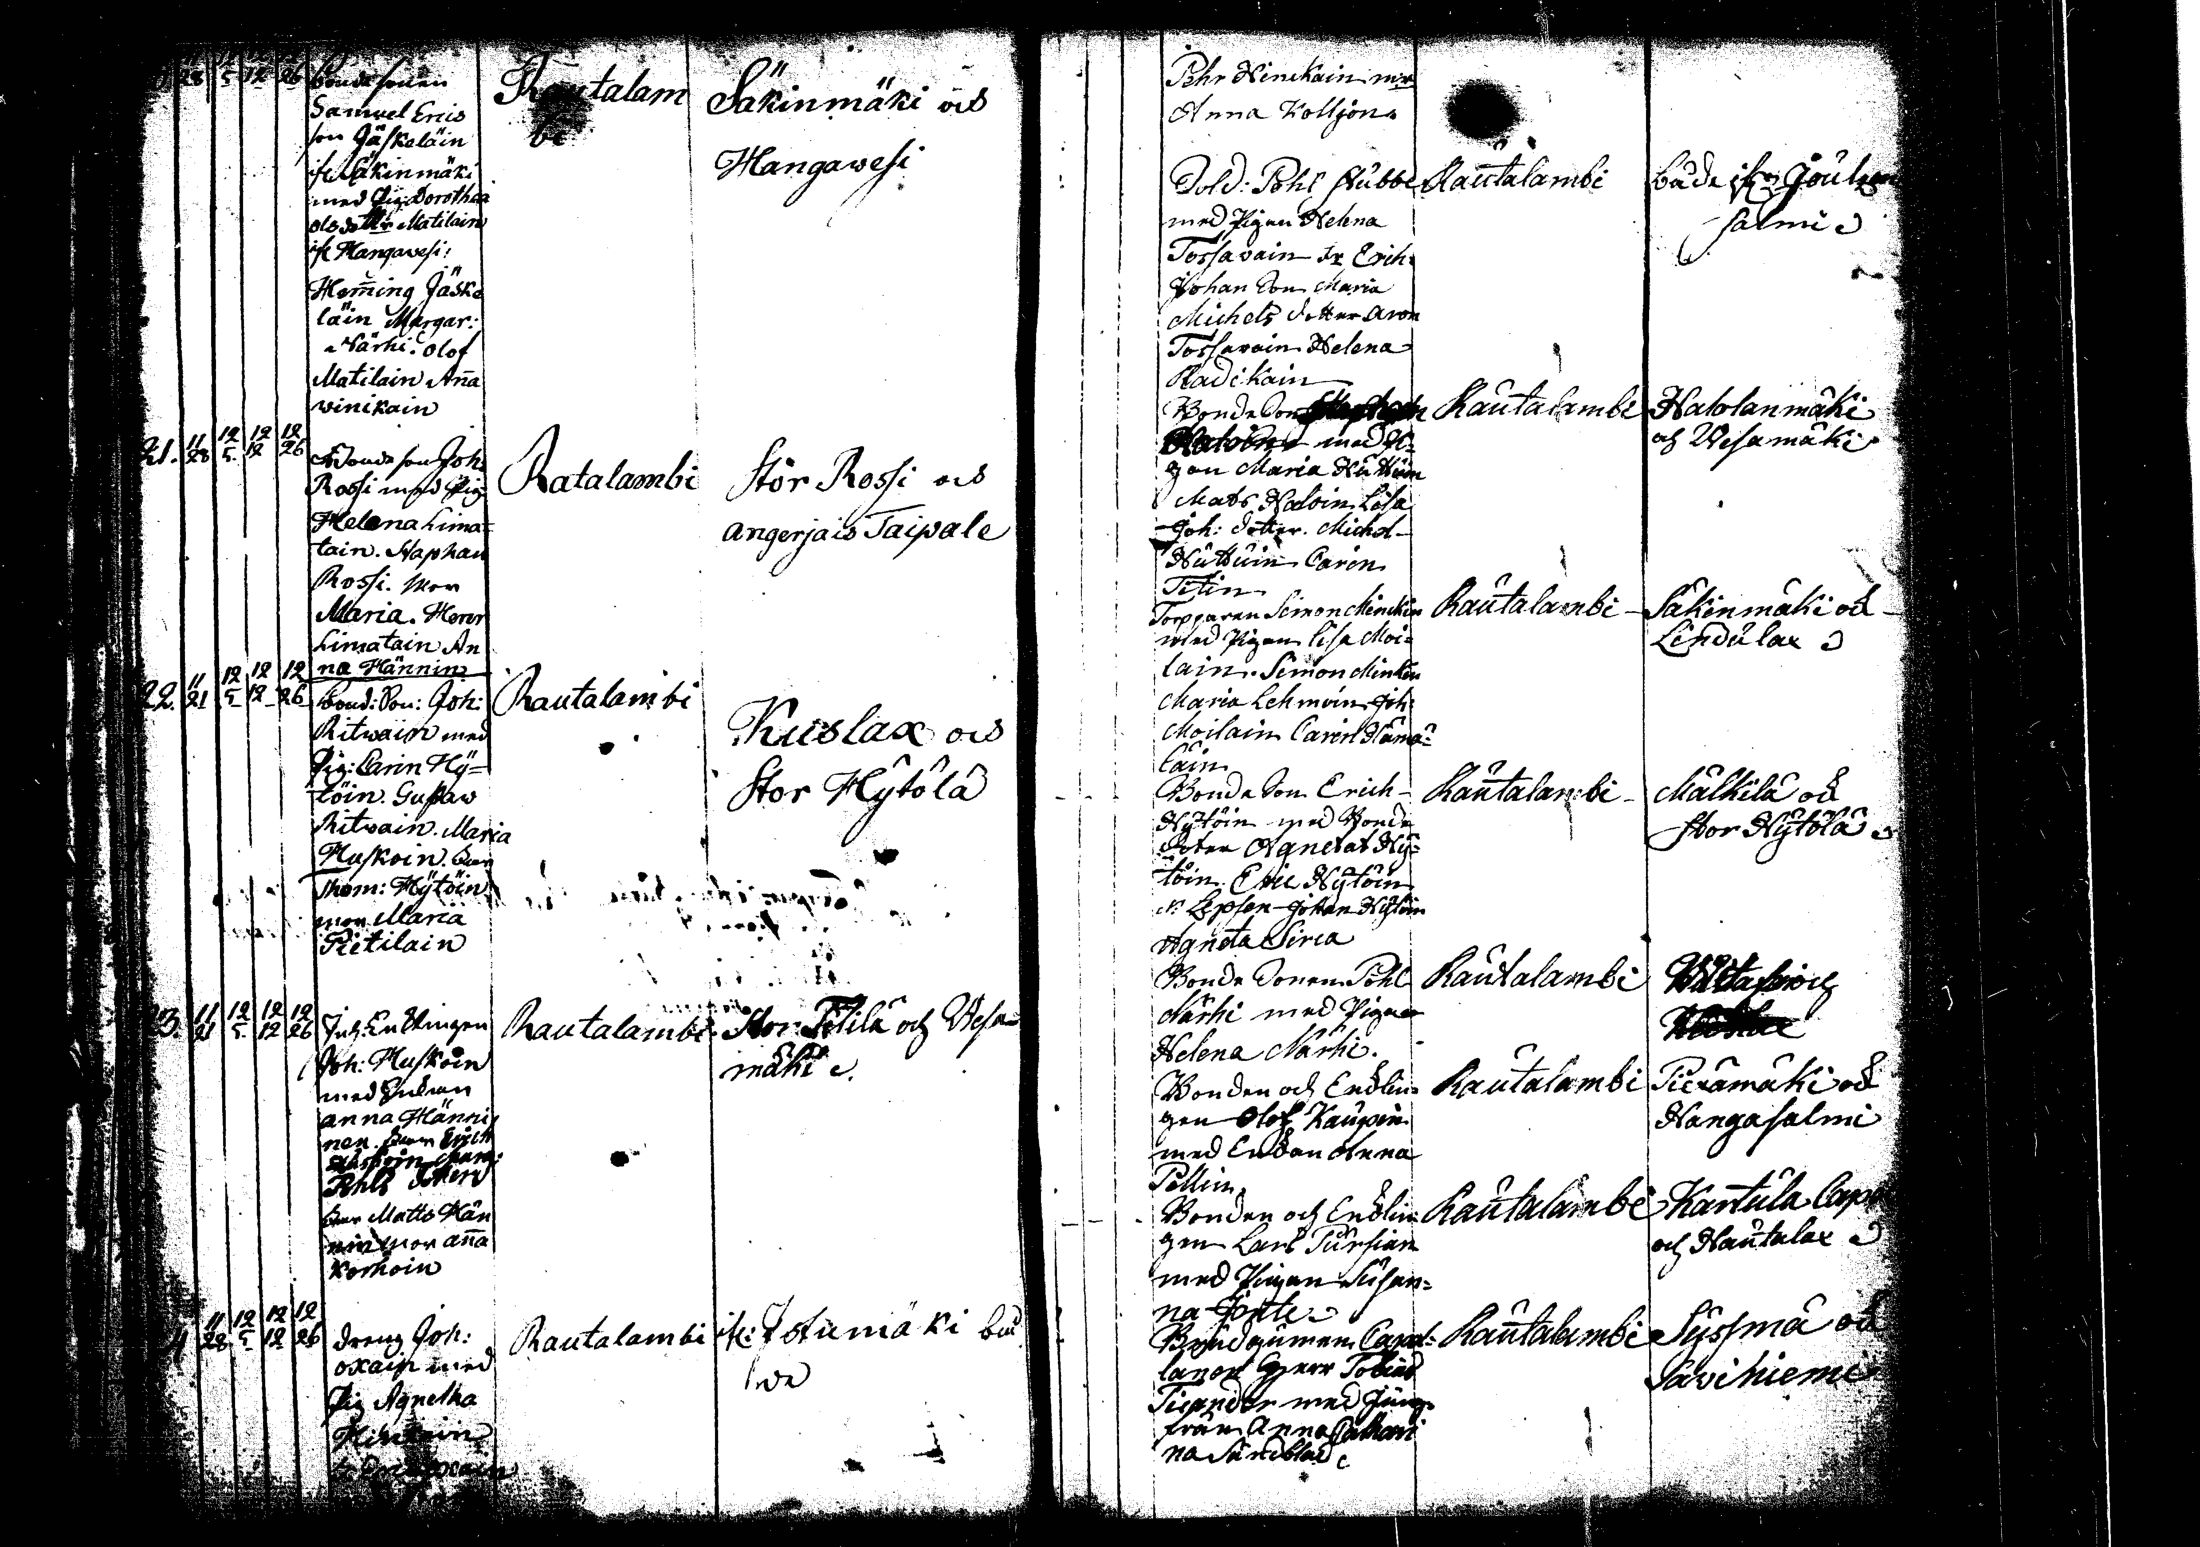 11 12 12 12
28 5 12 26 bonde sonen
Samuel Erics
son Jäskeläin
ifr Säkinmäki
med Pig Dorothea
olsdotter Matilain
ifr Hangawesi:
Hemming Jäske
läin Margar:
Närhi. Olof
Matilain Anna
winikain
Rautalam
bi
Säkinmäki och
Hangawesi
21. 11 12 12 12
28 5 12 26
Bonde son Joh.
Rossi med Pig
Helena Lima=
tain. Staphan
Rossi. Mor
Maria. Henr
Limatain An
na Hännin
Ratalambi
Stor Rossi och
angerjais Taipale
22. 11 12 12 12
21 5 12 26 bond: Son: Joh:
Ritwain med
Pig: Carin Hy=
töin. Gustaw
Ritwain. Maria
Huskoin. Far
Thom: Hytöin
mor Maria
Pietilain
Rautalambi
Kuslax och
Stor Hytölä
23. 11 12 12 12
21 5 12 26 Enklingen
Joh: Huskoin
med Enkan
anna Hänni
nen. Far Erich
Huskoin
Pohls dotter
Far Matts Hän
nin mor anna
Korhoin
Rautalambi
Stor Titilä och Wesa=
mäki
11 12 12 12
28 5 12 26 dreng Joh:
oxain med
Pig Agnetha
Rautalambi ifr: Istunmäki bå
de
Pehr Hinckain mor
Anna Kolljon
Sold: Pohl Stubbe
med Pigan Helena
Tossavain fr Erich
Johan Son Maria
Michels dotter Aron
Tossavain Helena
Radikain
Rautalambi
både ifrån Joutzen
salmi
Bonde Son
med Pi=
gan Maria Huttuin
Mats Haloin Lisa
Joh: dotter. Michel
Huttuin Carin
Titin
Rautalambi
Halolanmäki
och Wesamäki
Torpparen Simon Minckin
med Pigan Lisa Moi=
lain. Simon Minckin
Maria Lehmoin Joh:
Moilain Carin Hämä=
läin
Rautalambi
Säkinmäki och
Lindulax
Bonde Son Erich
Hytöin med Bonde
doter Agneta Hy=
töin. Eric Hytöin
Lepsen Johan Hytöin
Agneta Sirca
Rautalambi
Mälkilä och
Stor Hytölä
Bonde Sonen Pohl
Närhi med Pigan
Helena Närhi.
Rautalambi
Bonden och Enklin=
gen Olof Kaupin
med Enkan Anna
Pellin
Rautalambi
Piexämäki och
Hangasalmi
Bonden och Enklin=
gen Lars Pursiain
med Pigan Susan=
na Jonte
Rautalambi
Kartula Capel
och Hautalax
Brudgummen Capel=
lanen Herr Tobias
Ticander med Jung=
frun Anna Cathari
na Sundblad
Rautalambi
Syssmä och
Savihiemi